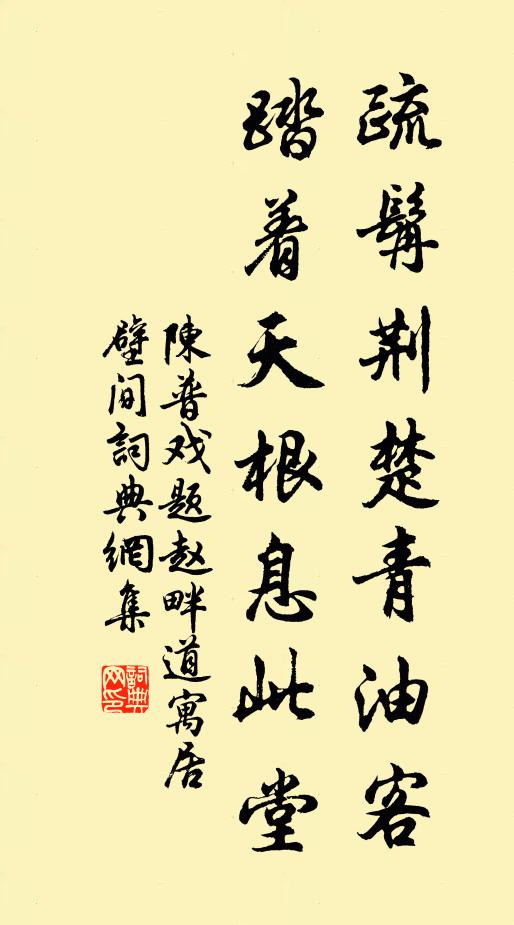 疏鬓荆楚青油客
踏着天根息此堂
陳普戏题赵畔道寓居
壁间詞典網集
詞典
网印